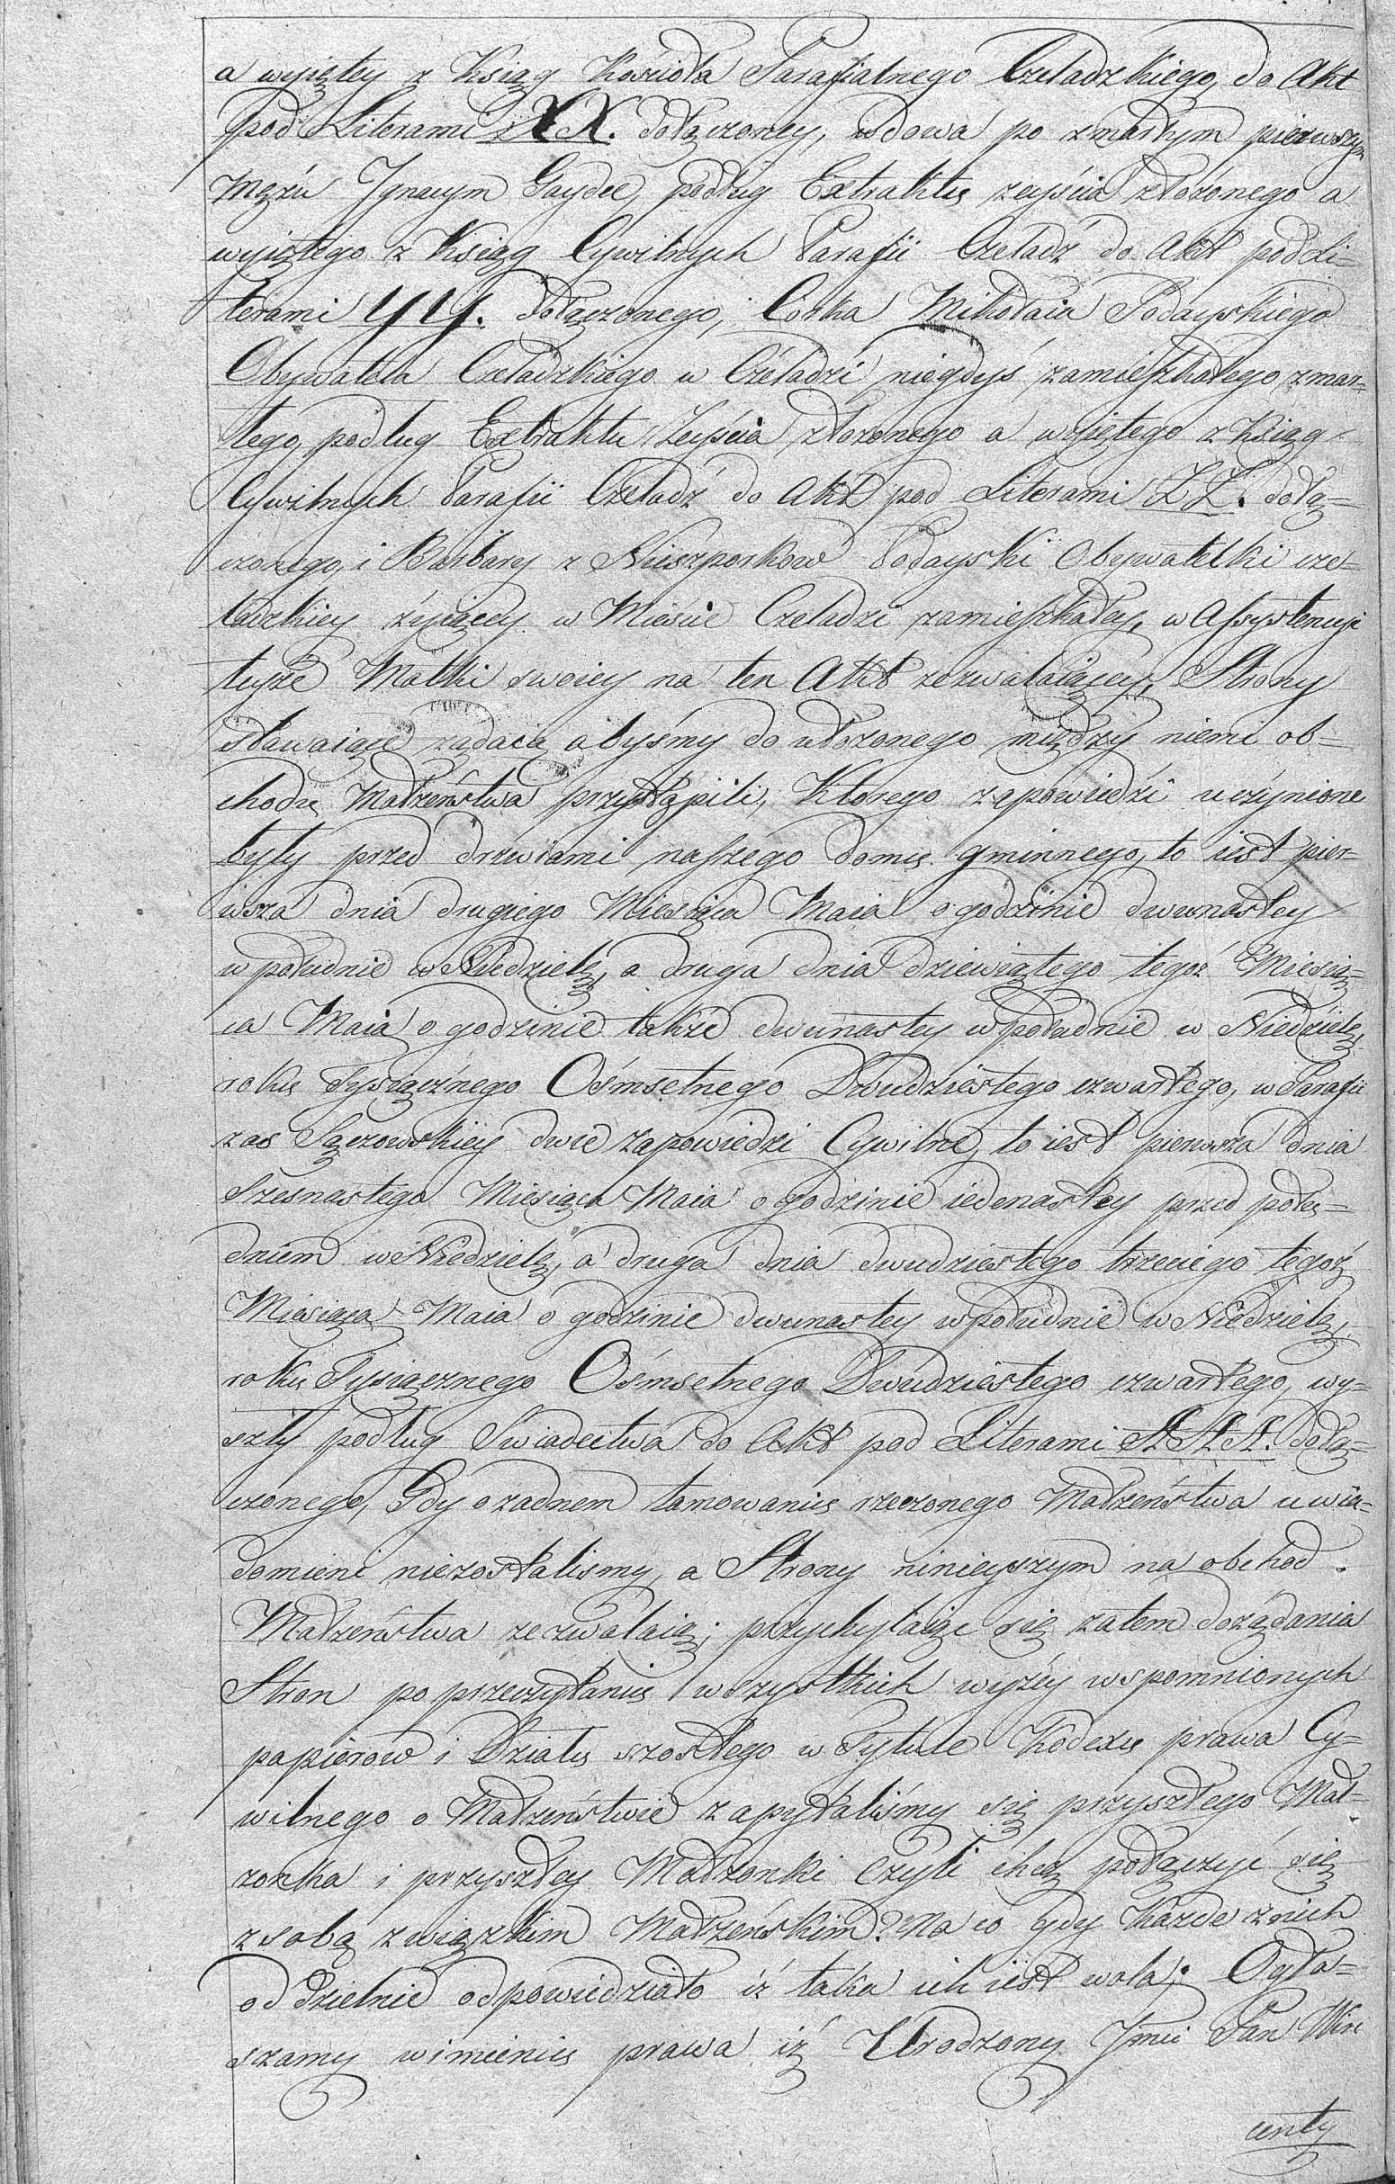 a wyiętey z Ksiąg Kościoła Parafialnego Czeladzkiego, do Akt
pod Literami XX. dołączoney, wdowa po zmarłym pierwszym
Mężu Ignacym Gaydce, podług Extraktu zeyścia złożonego a
wyiętego z Ksiąg Cywilnych Parafii Czeladź do Akt pod Li-
terami YY. dołączonego, Córka Mikołaia Podayskiego
Obywatela Czeladzkiego w Czeladzi niegdyś zamieszkałego, zmar-
łego, podług Extraktu Zeyścia złożonego a wyiętego z Ksiąg
Cywilnych Parafii Czeladź do Akt pod Literami ZZ. dołą-
czonego, i Barbary z Nieszporkow Podayski Obywatelki cze-
ladzkiey żyiącey w Mieście Czeladzi zamieszkałey, w Assystencyi
teyże Matki swoiey na ten Akt zezwalaiącey, Strony
stawaiące żądaią abyśmy do ułożonego między niemi ob-
chodu Małżeństwa przystąpili, Którego zapowiedzi uczynione
były przed drzwiami naszego domu gminnego, to iest pier-
wsza dnia drugiego Miesiąca Maia o godzinie dwunastey
w południe w Niedzielę, a druga dnia dziewiątego tegoż Miesią-
ca Maia o godzinie także dwunastey w południe w Niedzielę,
roku Tysiącznego Ośmsetnego Dwudziestego czwartego, w Parafii
zas Sączowskiey dwie zapowiedzi Cywilne, to iest pierwsza dnia
Szesnastego Miesiąca Maia o godzinie iedenastey przed połu-
dniem w Niedzielę, a druga dnia dwudziestego trzeciego tegoż
Miesiąca Maia o godzinie dwunastey w południe w Niedzielę,
roku Tysiącznego Ośmsetnego Dwudziestego czwartego, wy-
szły podług Swiadectwa do Akt pod Literami AAA. dołą-
czonego, Gdy o żadnem tamowaniu rzeczonego Małżeństwa uwia-
domieni niezostaliśmy, a Strony ninieyszym na obchod
Małżeństwa zezwalaią; przychylaiąc się zatem do żądania
Stron po przeczytaniu wszystkich wyżey wspomnionych
papierow i Działu szostego w Tytule Kodexu prawa Cy-
wilnego o Małżeństwie zapytaliśmy się przyszłego Mał-
żonka i przyszłey Małżonki Czyli chcą połączyć się
z sobą związkim Małżeńskim? Na co gdy każde z nich
oddzielnie odpowiedziało iż taka ich iest wola; Ogła-
szamy w imieniu prawa iż Urodzony Jmci Pan Win
centy